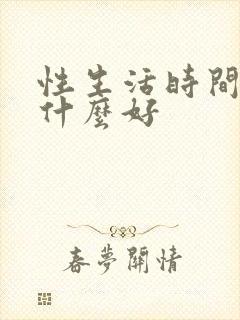 性生活時間
什麼好
春夢關情